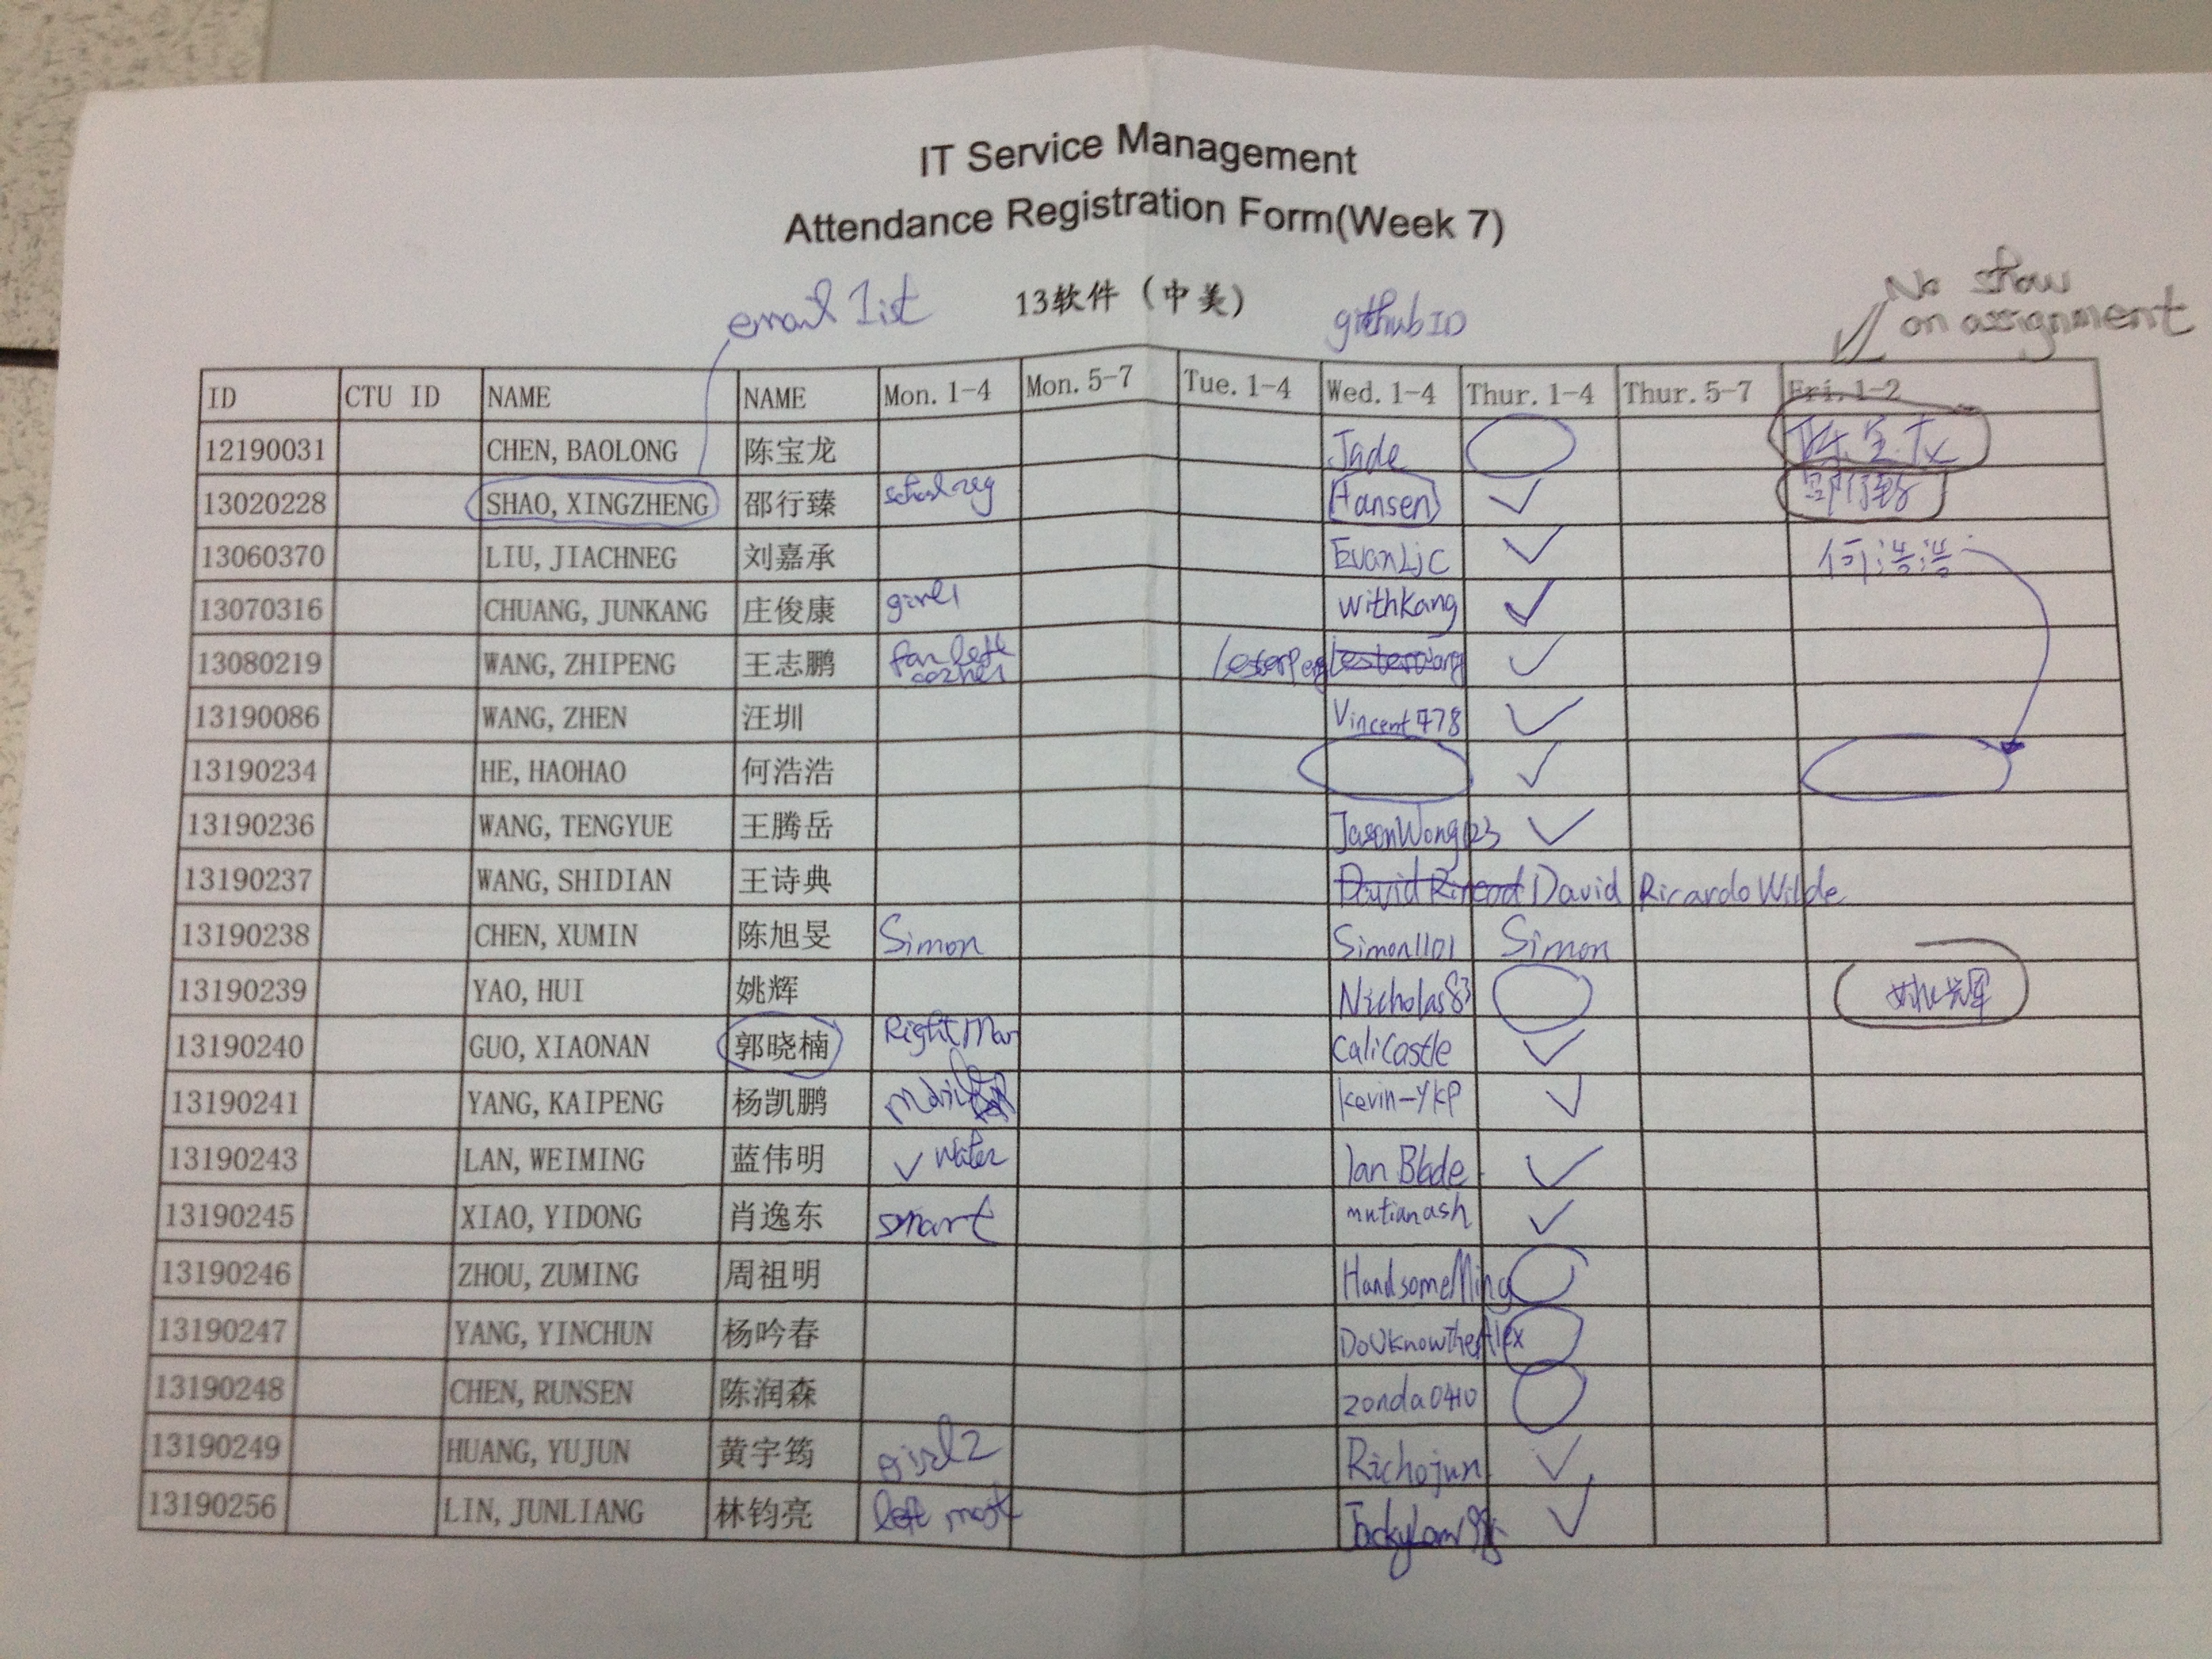 IT Service Management
Attendance Registration Form(Week 7)
email list 13软件（中美） github ID
No show
on assignment
ID CTU ID NAME NAME Mon. 1-4 Mon. 5-7 Tue. 1-4 Wed. 1-4 Thur. 1-4 Thur. 5-7 Fri. 1-2
12190031 CHEN, BAOLONG 陈宝龙 Jade
13020228 SHAO, XINGZHENG 邵行臻 Hansen ✓
13060370 LIU, JIACHNEG 刘嘉承 EvanLjc ✓ 何浩浩
13070316 CHUANG, JUNKANG 庄俊康 girl 1 withkang ✓
13080219 WANG, ZHIPENG 王志鹏 far left corner ✓
13190086 WANG, ZHEN 汪圳 Vincent7478 ✓
13190234 HE, HAOHAO 何浩浩 ✓
13190236 WANG, TENGYUE 王腾岳 JasonWong123 ✓
13190237 WANG, SHIDIAN 王诗典 David Ricardo Wilde
13190238 CHEN, XUMIN 陈旭旻 Simon Simon1101 Simon
13190239 YAO, HUI 姚辉 Nicholas83 姚辉
13190240 GUO, XIAONAN 郭晓楠 Right Mar CaliCastle ✓
13190241 YANG, KAIPENG 杨凯鹏 kevin-ykp ✓
13190243 LAN, WEIMING 蓝伟明 ✓ water Ian Blade ✓
13190245 XIAO, YIDONG 肖逸东 smart muttianash ✓
13190246 ZHOU, ZUMING 周祖明 HandsomeMing
13190247 YANG, YINCHUN 杨吟春 DoUknowtheAlex
13190248 CHEN, RUNSEN 陈润森 zonda0410
13190249 HUANG, YUJUN 黄宇筠 girl 2 Richojun ✓
13190256 LIN, JUNLIANG 林钧亮 left most ✓